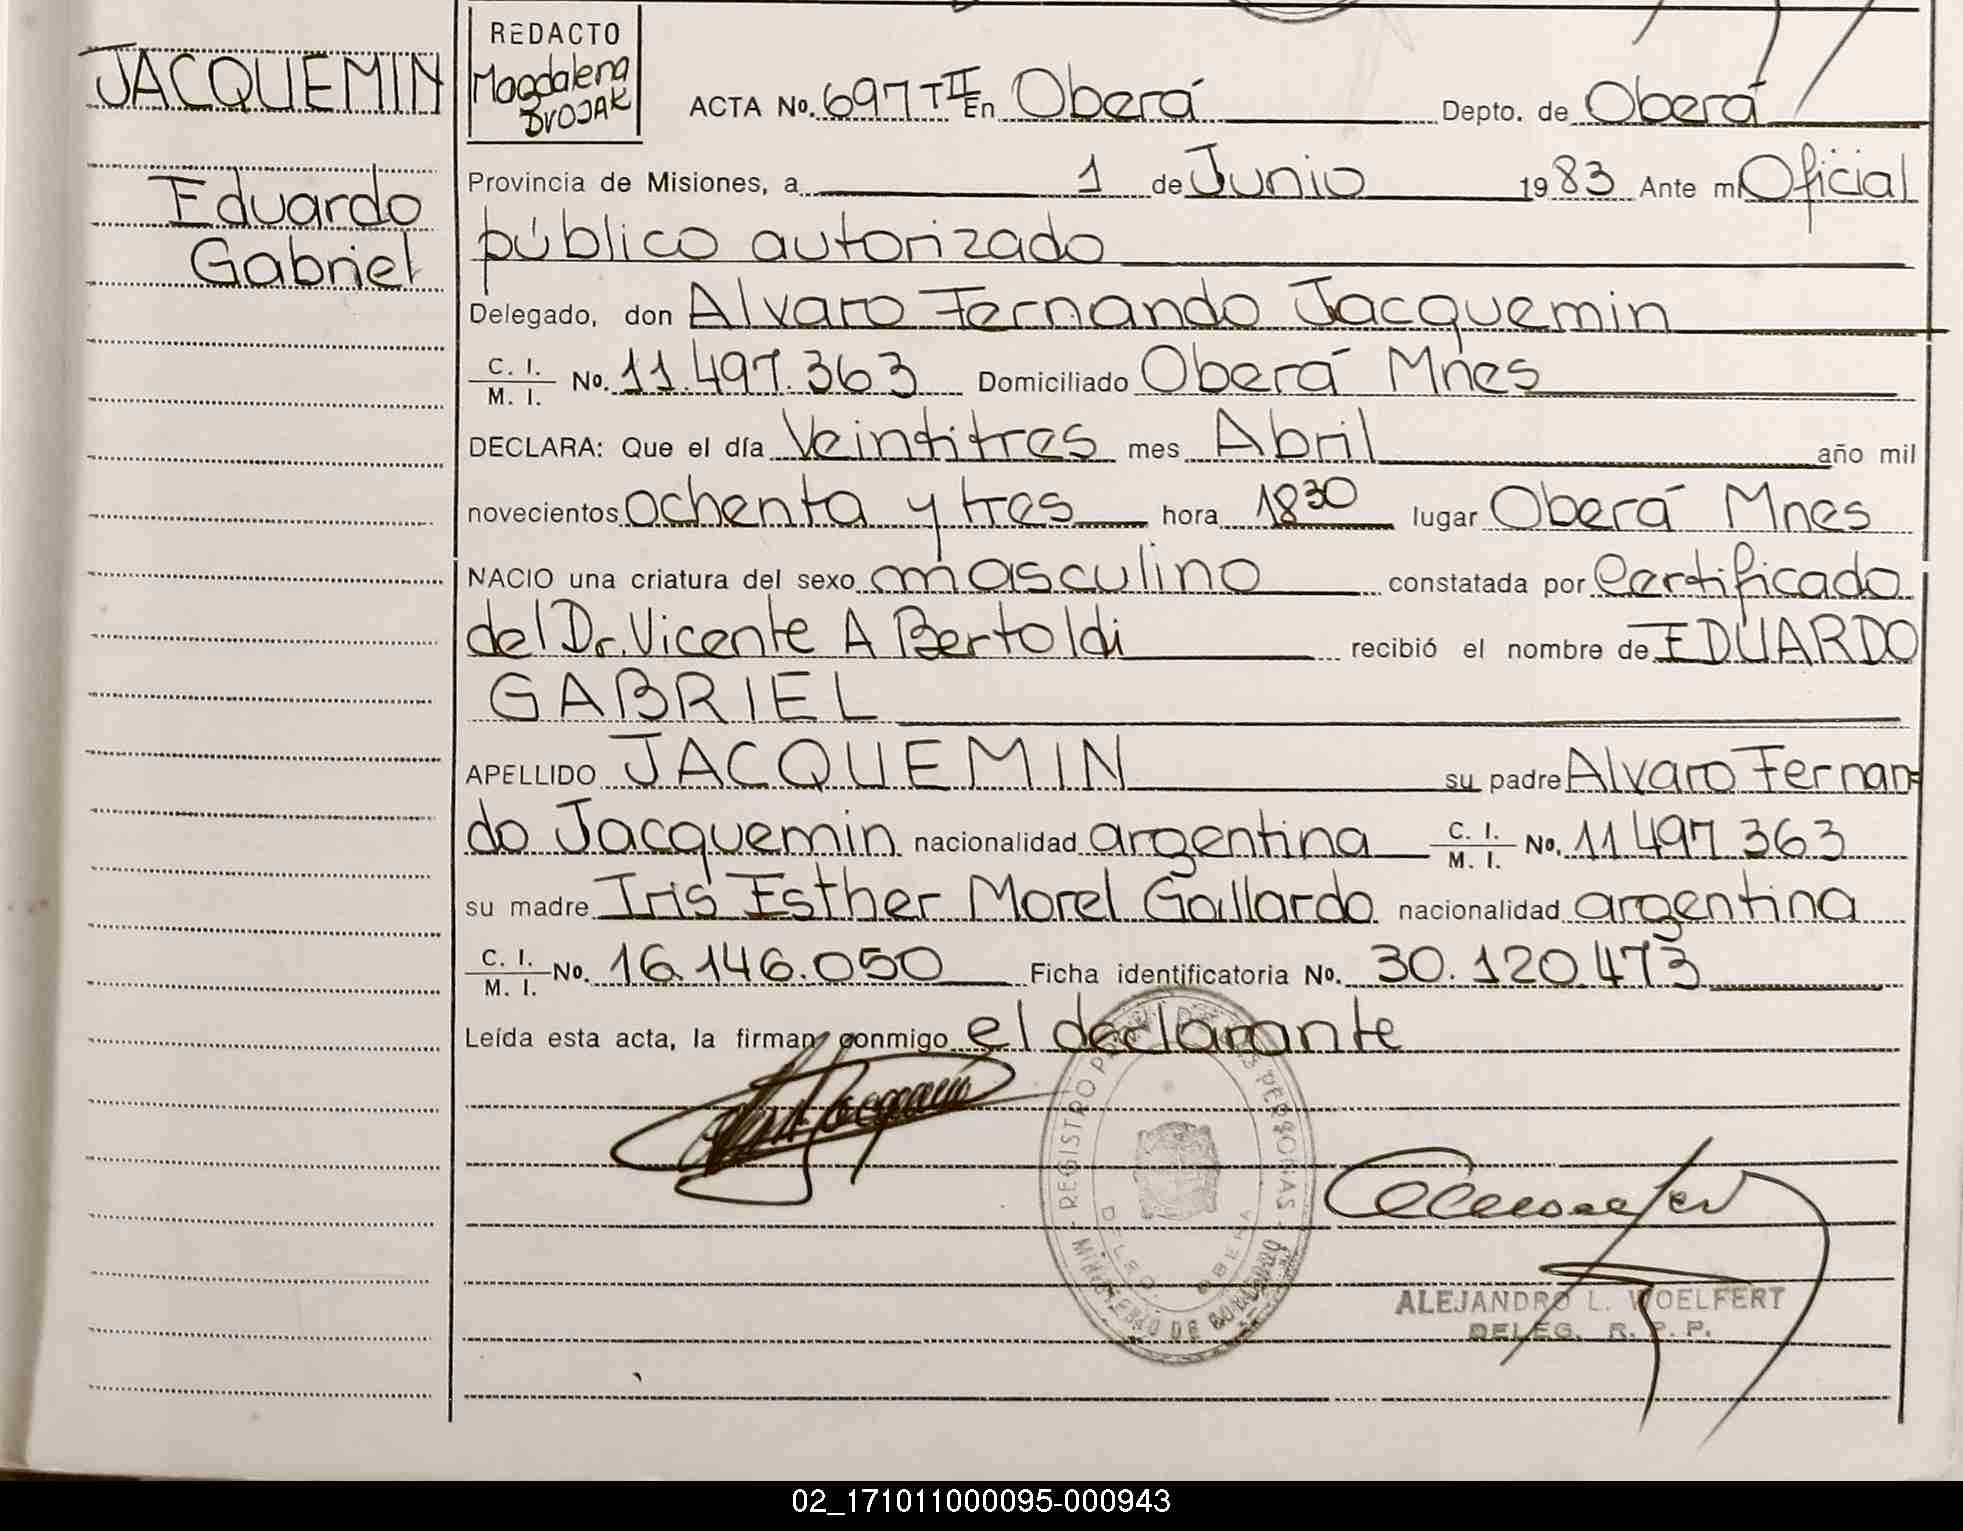 JACQUEMIN
Eduardo
Gabriel
REDACTO
Magdalena
DVOJAK
ACTA No. 697 T II En Oberá Depto. de Oberá
Provincia de Misiones, a 1 de Junio 1983 Ante mi Oficial
público autorizado
Delegado, don Alvaro Fernando Jacquemin
C. I. / M. I. No. 11.497.363 Domiciliado Oberá Mnes
DECLARA: Que el día Veintitres mes Abril año mil
novecientos ochenta y tres hora 18 30 lugar Oberá Mnes
NACIO una criatura del sexo masculino constatada por Certificado
del Dr. Vicente A Bertoldi recibió el nombre de EDUARDO
GABRIEL
APELLIDO JACQUEMIN su padre Alvaro Fernan=
do Jacquemin nacionalidad argentina C. I. / M. I. No. 11 497 363
su madre Iris Esther Morel Gallardo nacionalidad argentina
C. I. / M. I. No. 16.146.050 Ficha identificatoria No. 30.120.473
Leída esta acta, la firman conmigo el declarante
REGISTRO PERSONAS
MINISTERIO DE GOBIERNO
DELEG. OBERA
ALEJANDRO L. WOELFERT
DELEG. R. P. P.
02_171011000095-000943